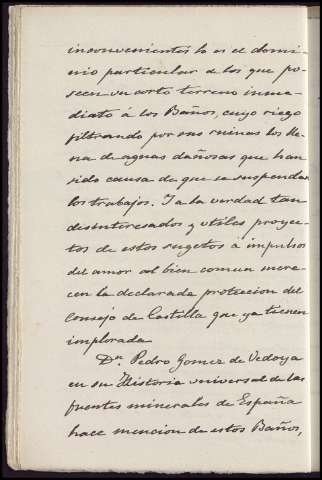 inconvenientes lo es el domi-
nio particular de los que po-
seen un corto terreno inme-
diato á los Baños, cuyo riego
filtrando por sus ruinas los lle-
na de aguas dañosas que han
sido causa de que se suspendan
los trabajos. I a la verdad tan
desinteresados y utiles proyec-
tos de estos sugetos a impulsos
del amor al bien comun mere-
cen la declarada proteccion del
Consejo de Castilla que ya tienen
implorada
Dn Pedro Gomez de Vedoya
en su Historia universal de las
fuentes minerales de España
hace mencion de estos Baños,